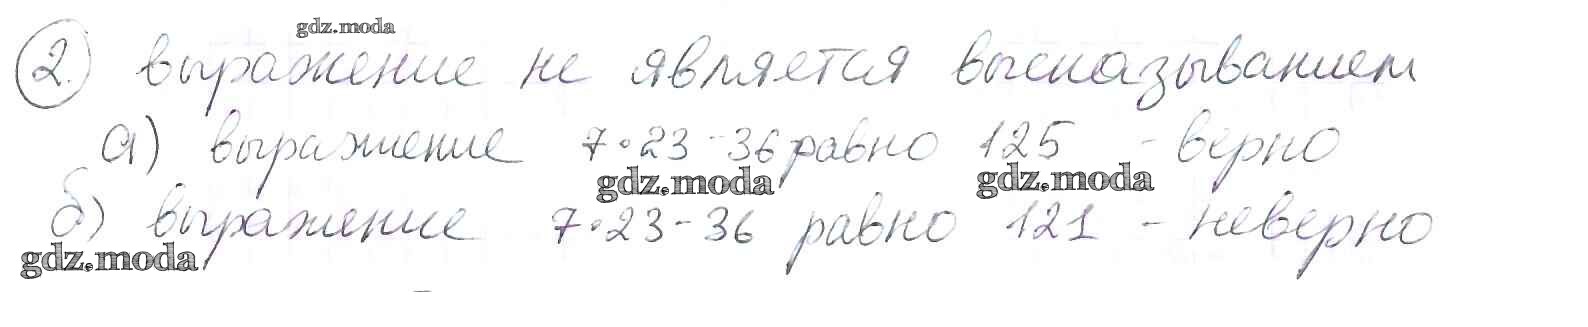 gdz.moda
2. выражение не является высказыванием
а) выражение 7·23-36 равно 125 - верно
gdz.moda gdz.moda
б) выражение 7·23-36 равно 121 - неверно
gdz.moda